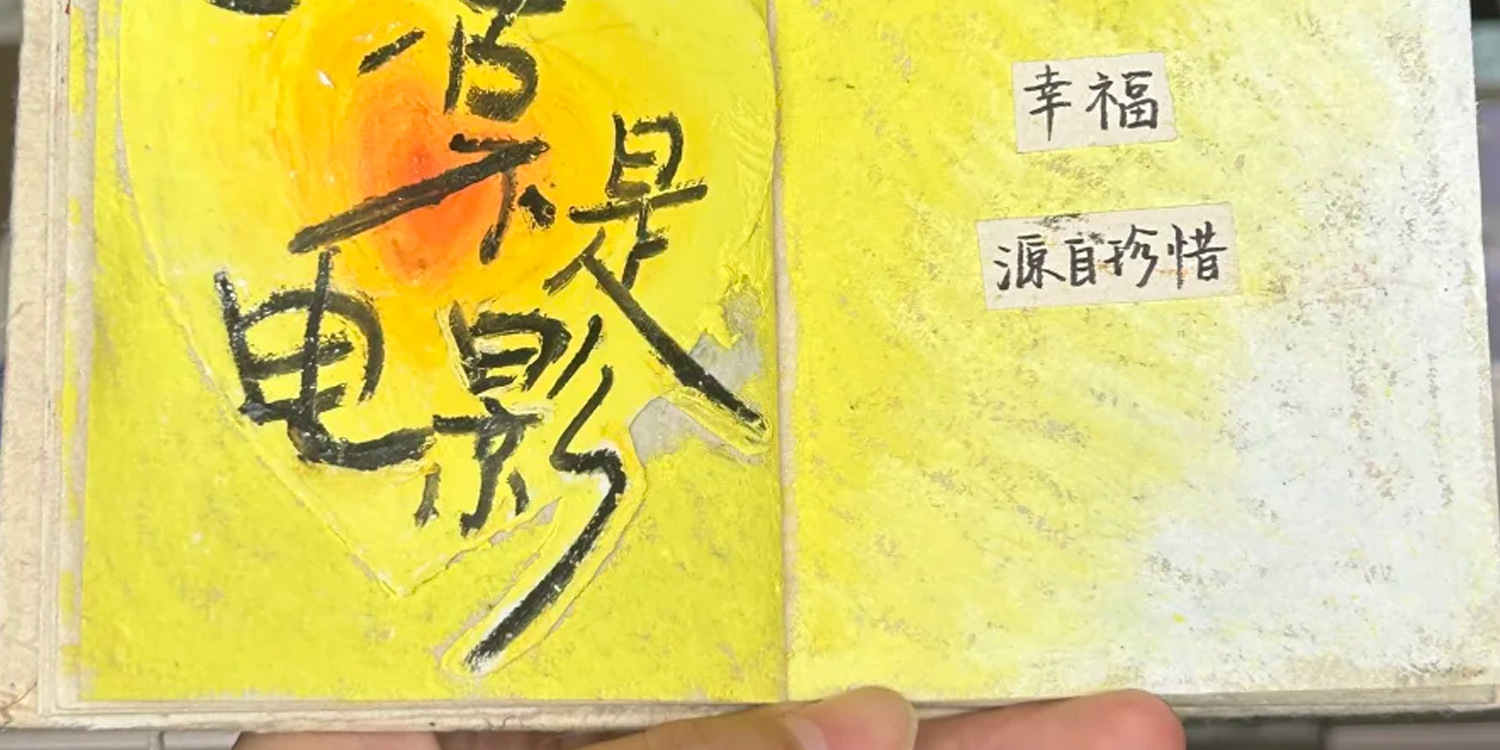 不是
电影
幸福
源自珍惜